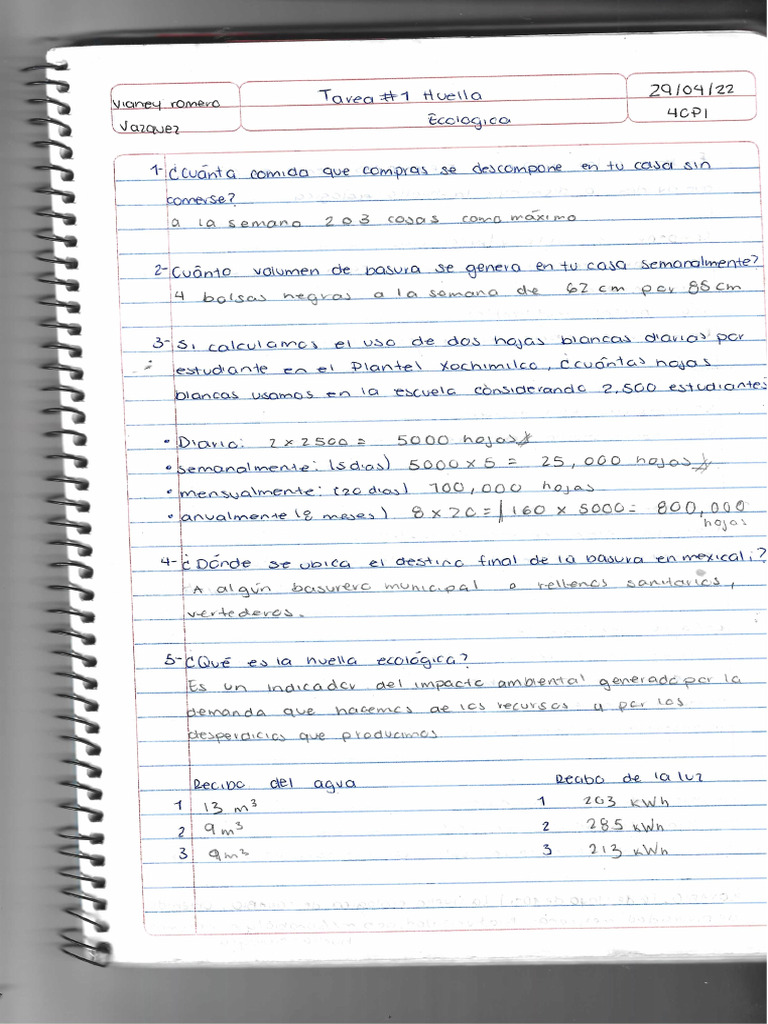 Vianey romero
Vazquez
Tarea #1 Huella
Ecologica
29/04/22
4CP1
1- ¿Cuánta comida que compras se descompone en tu casa sin
comerse?
a la semana 2 o 3 cosas como máximo
2- Cuánto volumen de basura se genera en tu casa semanalmente?
4 bolsas negras a la semana de 62 cm por 85 cm
3- Si calculamos el uso de dos hojas blancas diarias por
estudiante en el Plantel Xochimilco, ¿cuántas hojas
blancas usamos en la escuela considerando 2,500 estudiantes
• Diario: 2 x 2500 = 5000 hojas
• semanalmente: (5 dias) 5000 x 5 = 25,000 hojas
• mensualmente: (20 dias) 100,000 hojas
• anualmente (8 meses) 8 x 20 = 160 x 5000 = 800,000
hojas
4- ¿Dónde se ubica el destino final de la basura en mexicali?
A algún basurero municipal o rellenos sanitarios,
vertederos.
5- ¿Qué es la huella ecológica?
Es un indicador del impacto ambiental generado por la
demanda que hacemos de los recursos y por los
desperdicios que producimos
Recibo del agua
1 13 m³
2 9 m³
3 9 m³
Recibo de la luz
1 203 kWh
2 285 kWh
3 213 kWh